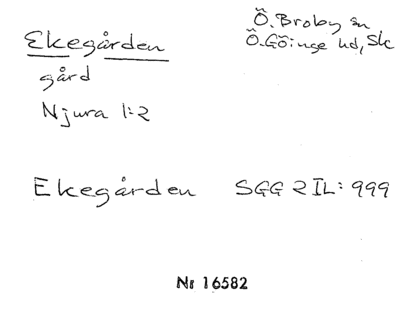 Ekegården
Ö. Broby sn
Ö. Göinge hd, Sk
gård
Njura 1:2
Ekegården SGG 2 IL: 999
Nr 16582